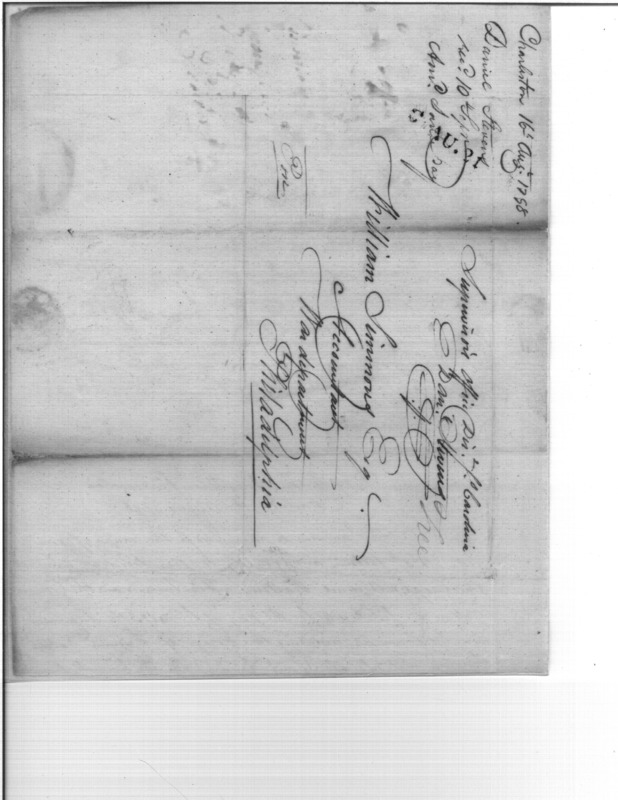 Charleston 16th Augt. 1798.
Daniel Stevens
recd 10th Septr
Ansd Same day
AU. 21
Supervisors Office Dist. of So Carolina
Dan. Stevens
Free
William Simmons Esqr.
Accountant
War department
Philadelphia